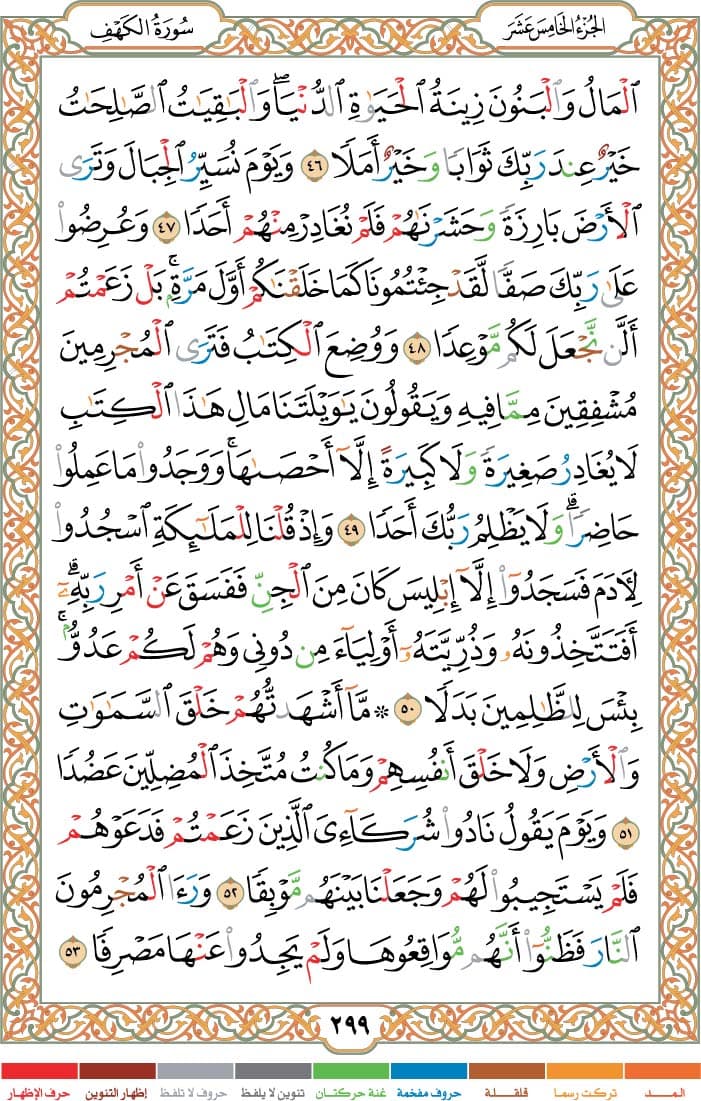 الجُزْءُ الخَامِسَ عَشَرَ
سُورَةُ الكَهْفِ
ٱلْمَالُ وَٱلْبَنُونَ زِينَةُ ٱلْحَيَوٰةِ ٱلدُّنْيَاۖ وَٱلْبَٰقِيَٰتُ ٱلصَّٰلِحَٰتُ
خَيْرٌ عِندَ رَبِّكَ ثَوَابًا وَخَيْرٌ أَمَلًا ٤٦ وَيَوْمَ نُسَيِّرُ ٱلْجِبَالَ وَتَرَى
ٱلْأَرْضَ بَارِزَةً وَحَشَرْنَٰهُمْ فَلَمْ نُغَادِرْ مِنْهُمْ أَحَدًا ٤٧ وَعُرِضُوا۟
عَلَىٰ رَبِّكَ صَفًّا لَّقَدْ جِئْتُمُونَا كَمَا خَلَقْنَٰكُمْ أَوَّلَ مَرَّةٍۭۚ بَلْ زَعَمْتُمْ
أَلَّن نَّجْعَلَ لَكُم مَّوْعِدًا ٤٨ وَوُضِعَ ٱلْكِتَٰبُ فَتَرَى ٱلْمُجْرِمِينَ
مُشْفِقِينَ مِمَّا فِيهِ وَيَقُولُونَ يَٰوَيْلَتَنَا مَالِ هَٰذَا ٱلْكِتَٰبِ
لَا يُغَادِرُ صَغِيرَةً وَلَا كَبِيرَةً إِلَّآ أَحْصَىٰهَاۚ وَوَجَدُوا۟ مَا عَمِلُوا۟
حَاضِرًاۗ وَلَا يَظْلِمُ رَبُّكَ أَحَدًا ٤٩ وَإِذْ قُلْنَا لِلْمَلَٰٓئِكَةِ ٱسْجُدُوا۟
لِءَادَمَ فَسَجَدُوٓا۟ إِلَّآ إِبْلِيسَ كَانَ مِنَ ٱلْجِنِّ فَفَسَقَ عَنْ أَمْرِ رَبِّهِۦٓۗ
أَفَتَتَّخِذُونَهُۥ وَذُرِّيَّتَهُۥٓ أَوْلِيَآءَ مِن دُونِى وَهُمْ لَكُمْ عَدُوٌّۢۚ
بِئْسَ لِلظَّٰلِمِينَ بَدَلًا ٥٠ ۞ مَّآ أَشْهَدتُّهُمْ خَلْقَ ٱلسَّمَٰوَٰتِ
وَٱلْأَرْضِ وَلَا خَلْقَ أَنفُسِهِمْ وَمَا كُنتُ مُتَّخِذَ ٱلْمُضِلِّينَ عَضُدًا
٥١ وَيَوْمَ يَقُولُ نَادُوا۟ شُرَكَآءِىَ ٱلَّذِينَ زَعَمْتُمْ فَدَعَوْهُمْ
فَلَمْ يَسْتَجِيبُوا۟ لَهُمْ وَجَعَلْنَا بَيْنَهُم مَّوْبِقًا ٥٢ وَرَءَا ٱلْمُجْرِمُونَ
ٱلنَّارَ فَظَنُّوٓا۟ أَنَّهُم مُّوَاقِعُوهَا وَلَمْ يَجِدُوا۟ عَنْهَا مَصْرِفًا ٥٣
٢٩٩
المــد تركت رسما قلقلة حروف مفخمة غنة حركتان تنوين لا يلفظ حروف لا تلفظ إظهار التنوين حرف الإظهار